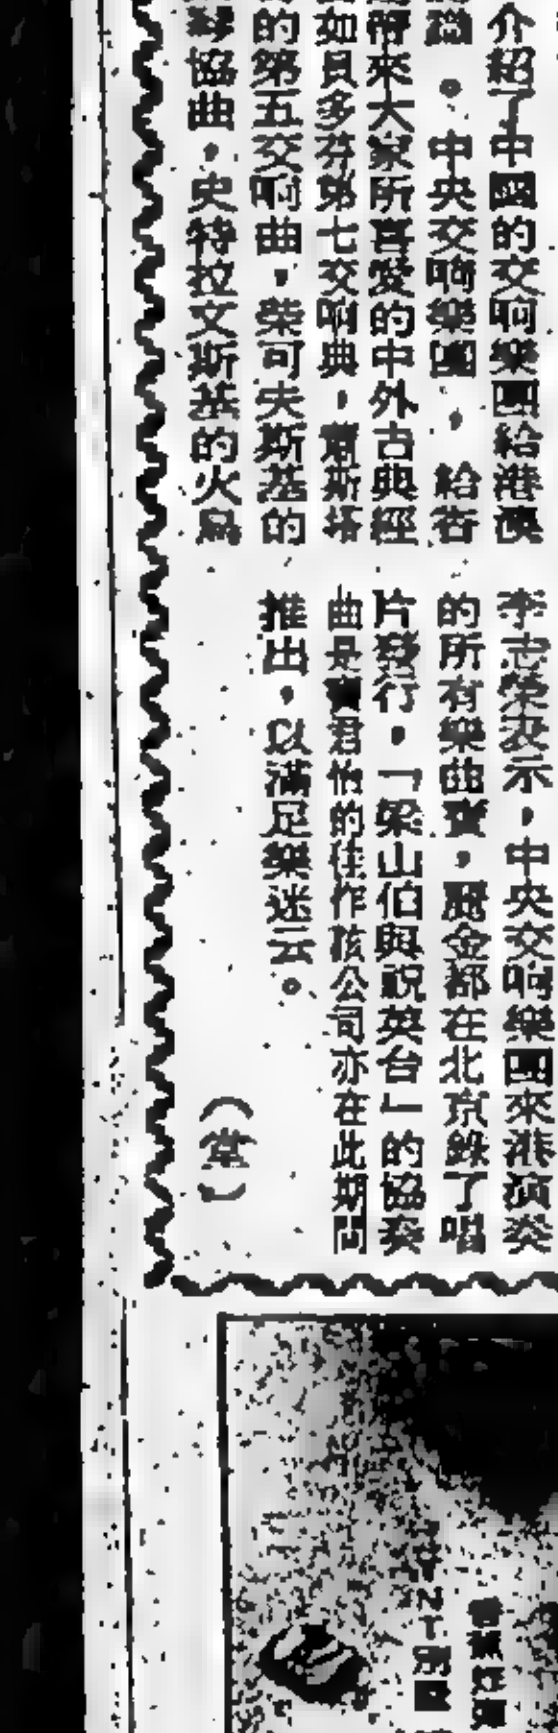 介紹了中國的交响樂團給港澳
。中央交响樂團，給香
帶來大家所喜愛的中外古典經
如貝多芬第七交响典，蕭斯塔
的第五交响曲，柴可夫斯基的
琴協曲，史特拉文斯基的火鳥
李志榮表示，中央交响樂團來港演奏
的所有樂曲寶，金都在北京錄了唱
片發行，「梁山伯與祝英台」的協奏
曲是寶君怡的佳作該公司亦在此期間
推出，以滿足樂迷云。
（堂）
NT別